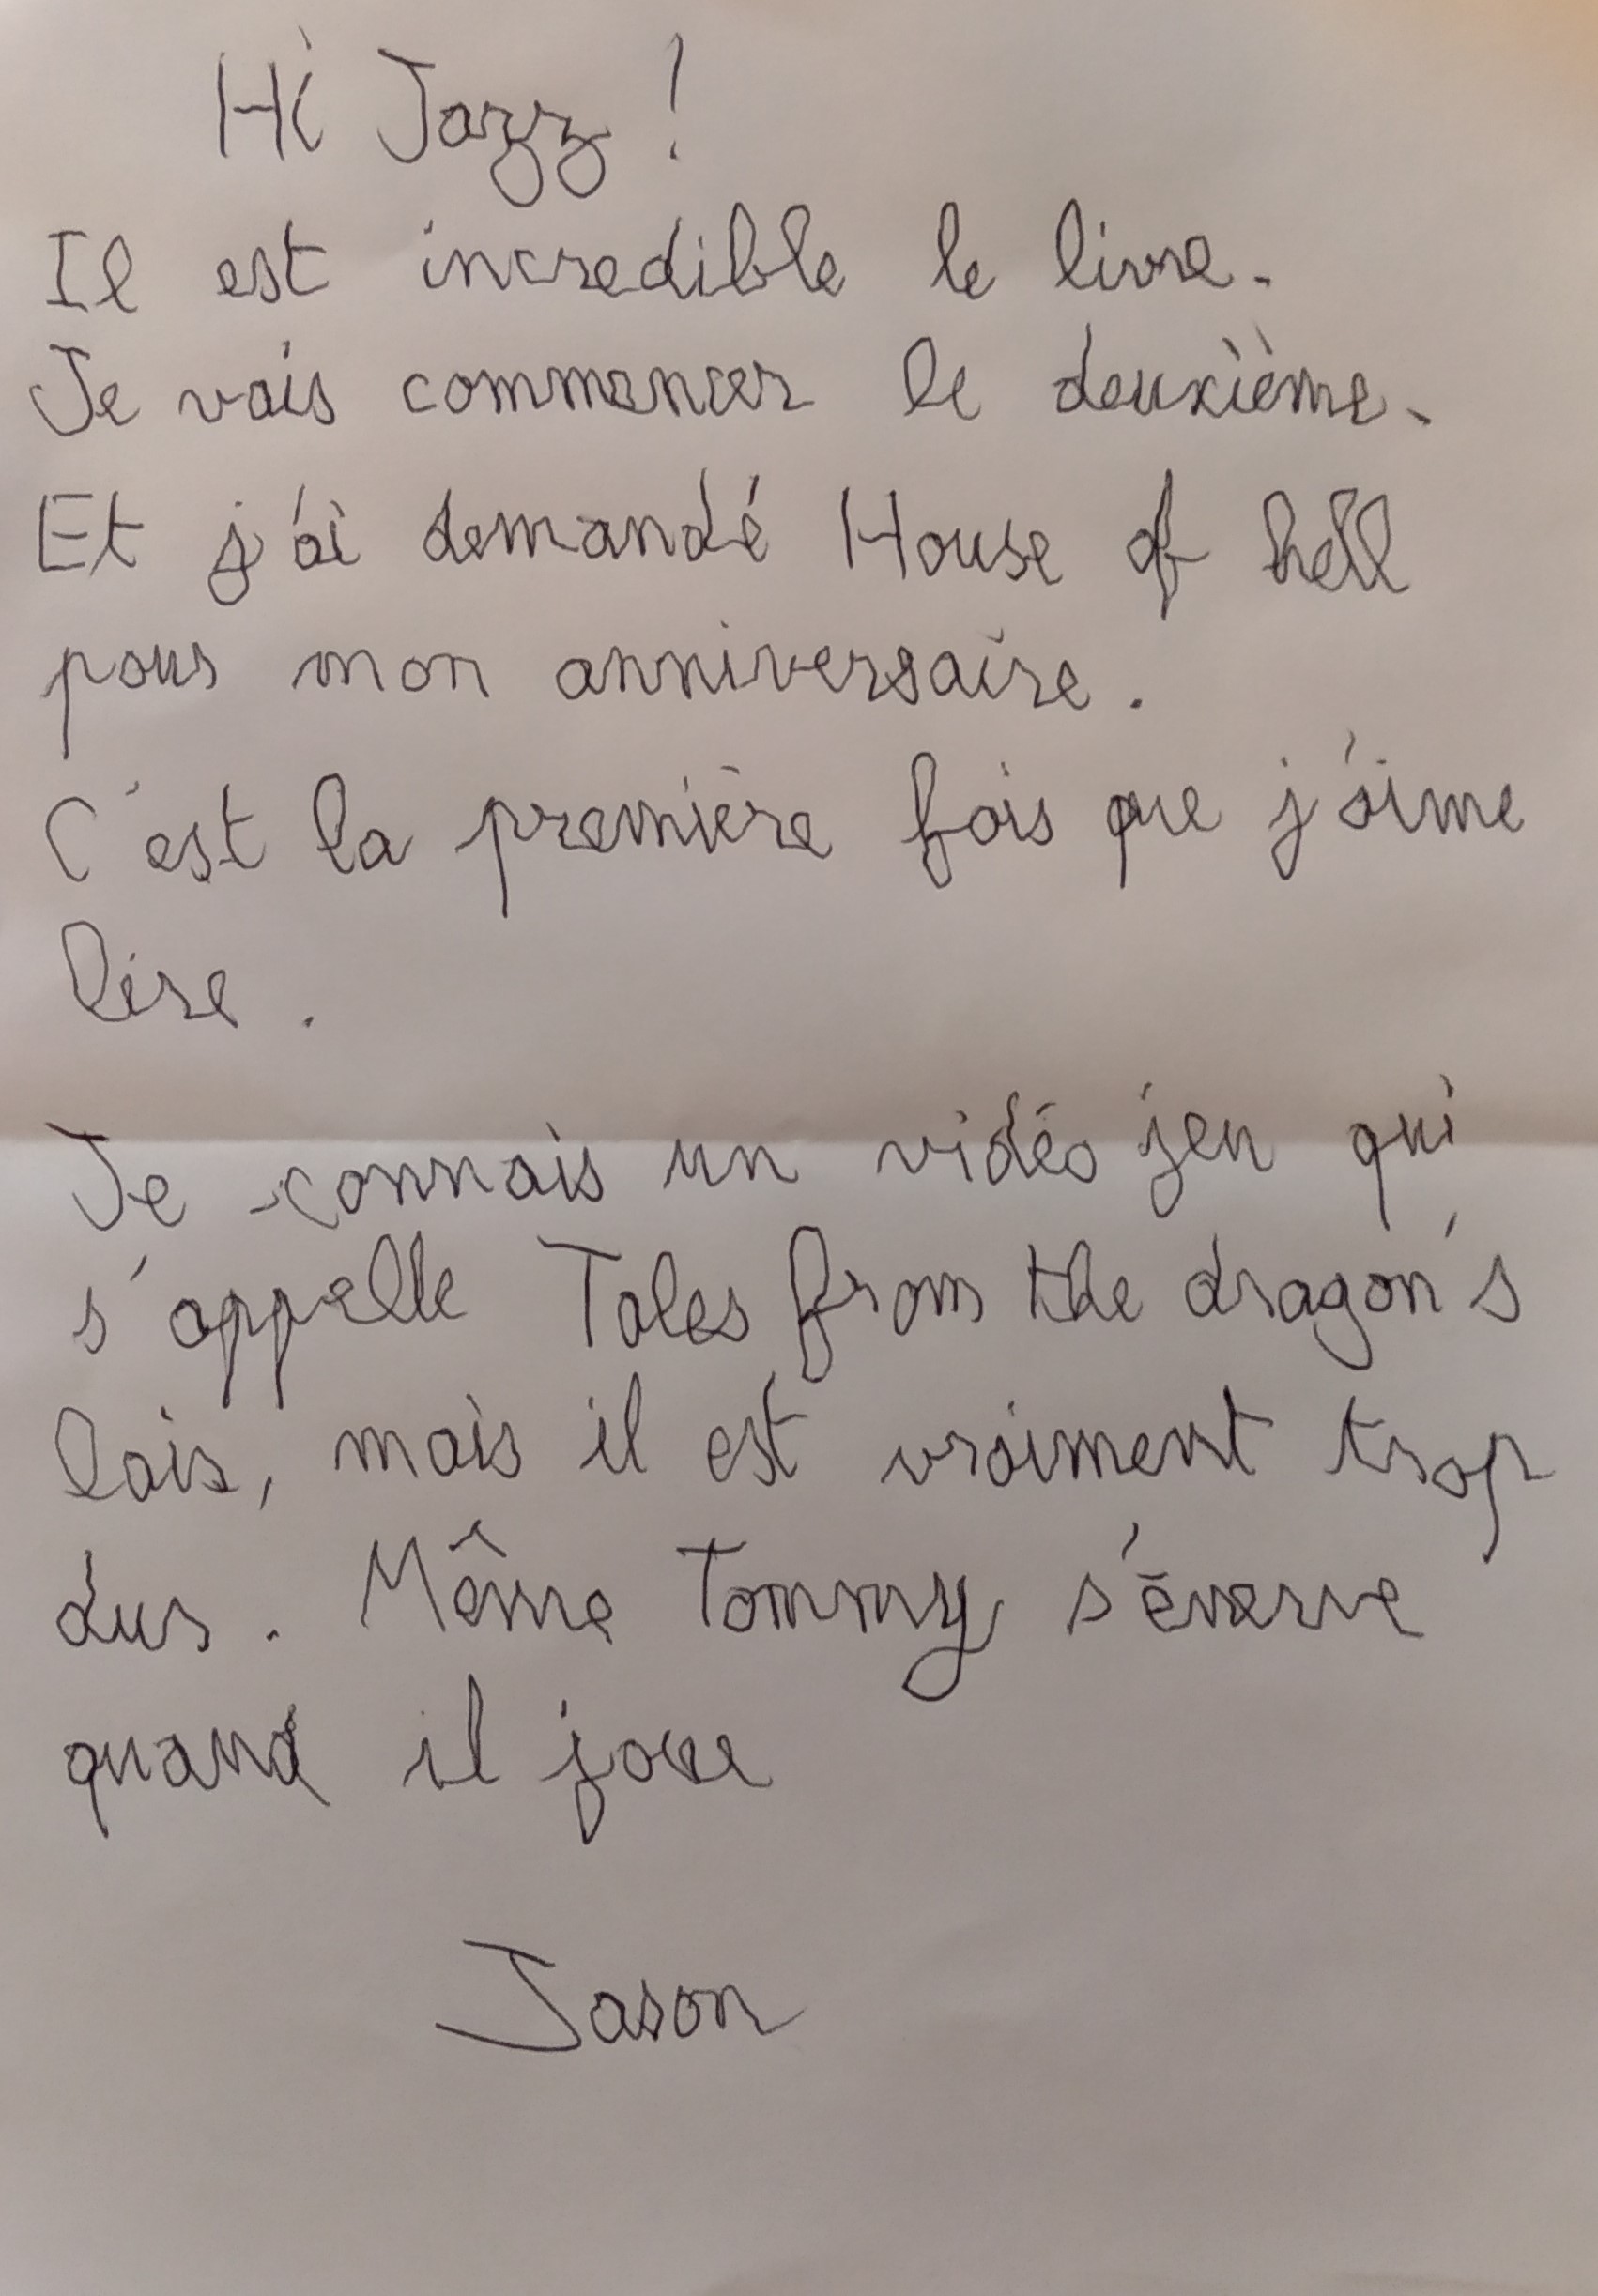 Hi Jazz !
Il est incredible le livre.
Je vais commencer le deuxième.
Et j'ai demandé House of hell
pour mon anniversaire.
C'est la première fois que j'aime
lire.
Je connais un vidéo jeu qui
s'appelle Tales from the dragon's
lair, mais il est vraiment trop
dur. Même Tommy s'énerve
quand il joue
Jason